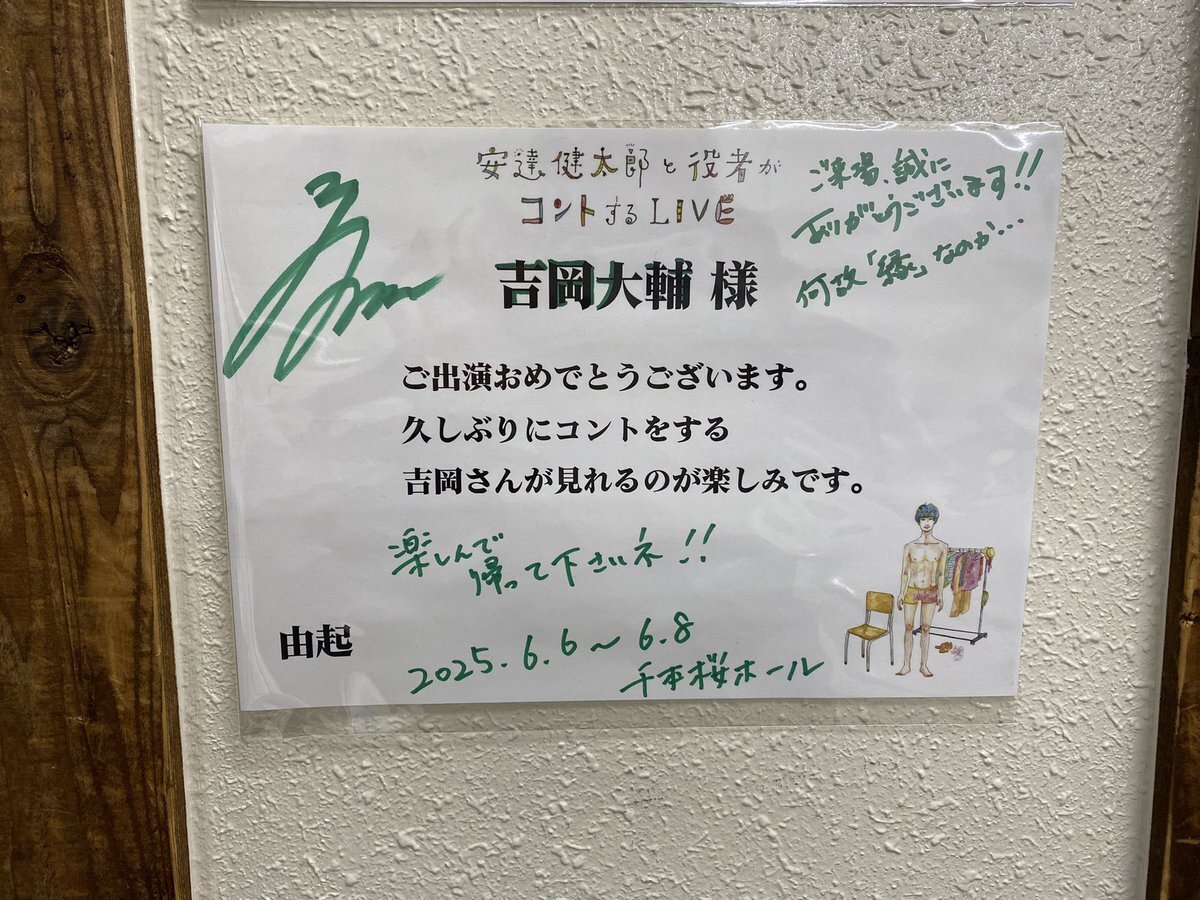 安達健太郎と役者が
コントするLIVE
吉岡大輔 様
ご来場、誠に
ありがとうございます!!
何故「緑」なのか…
ご出演おめでとうございます。
久しぶりにコントをする
吉岡さんが見れるのが楽しみです。
楽しんで
帰って下さいネ!!
由起
2025.6.6~6.8
千本桜ホール